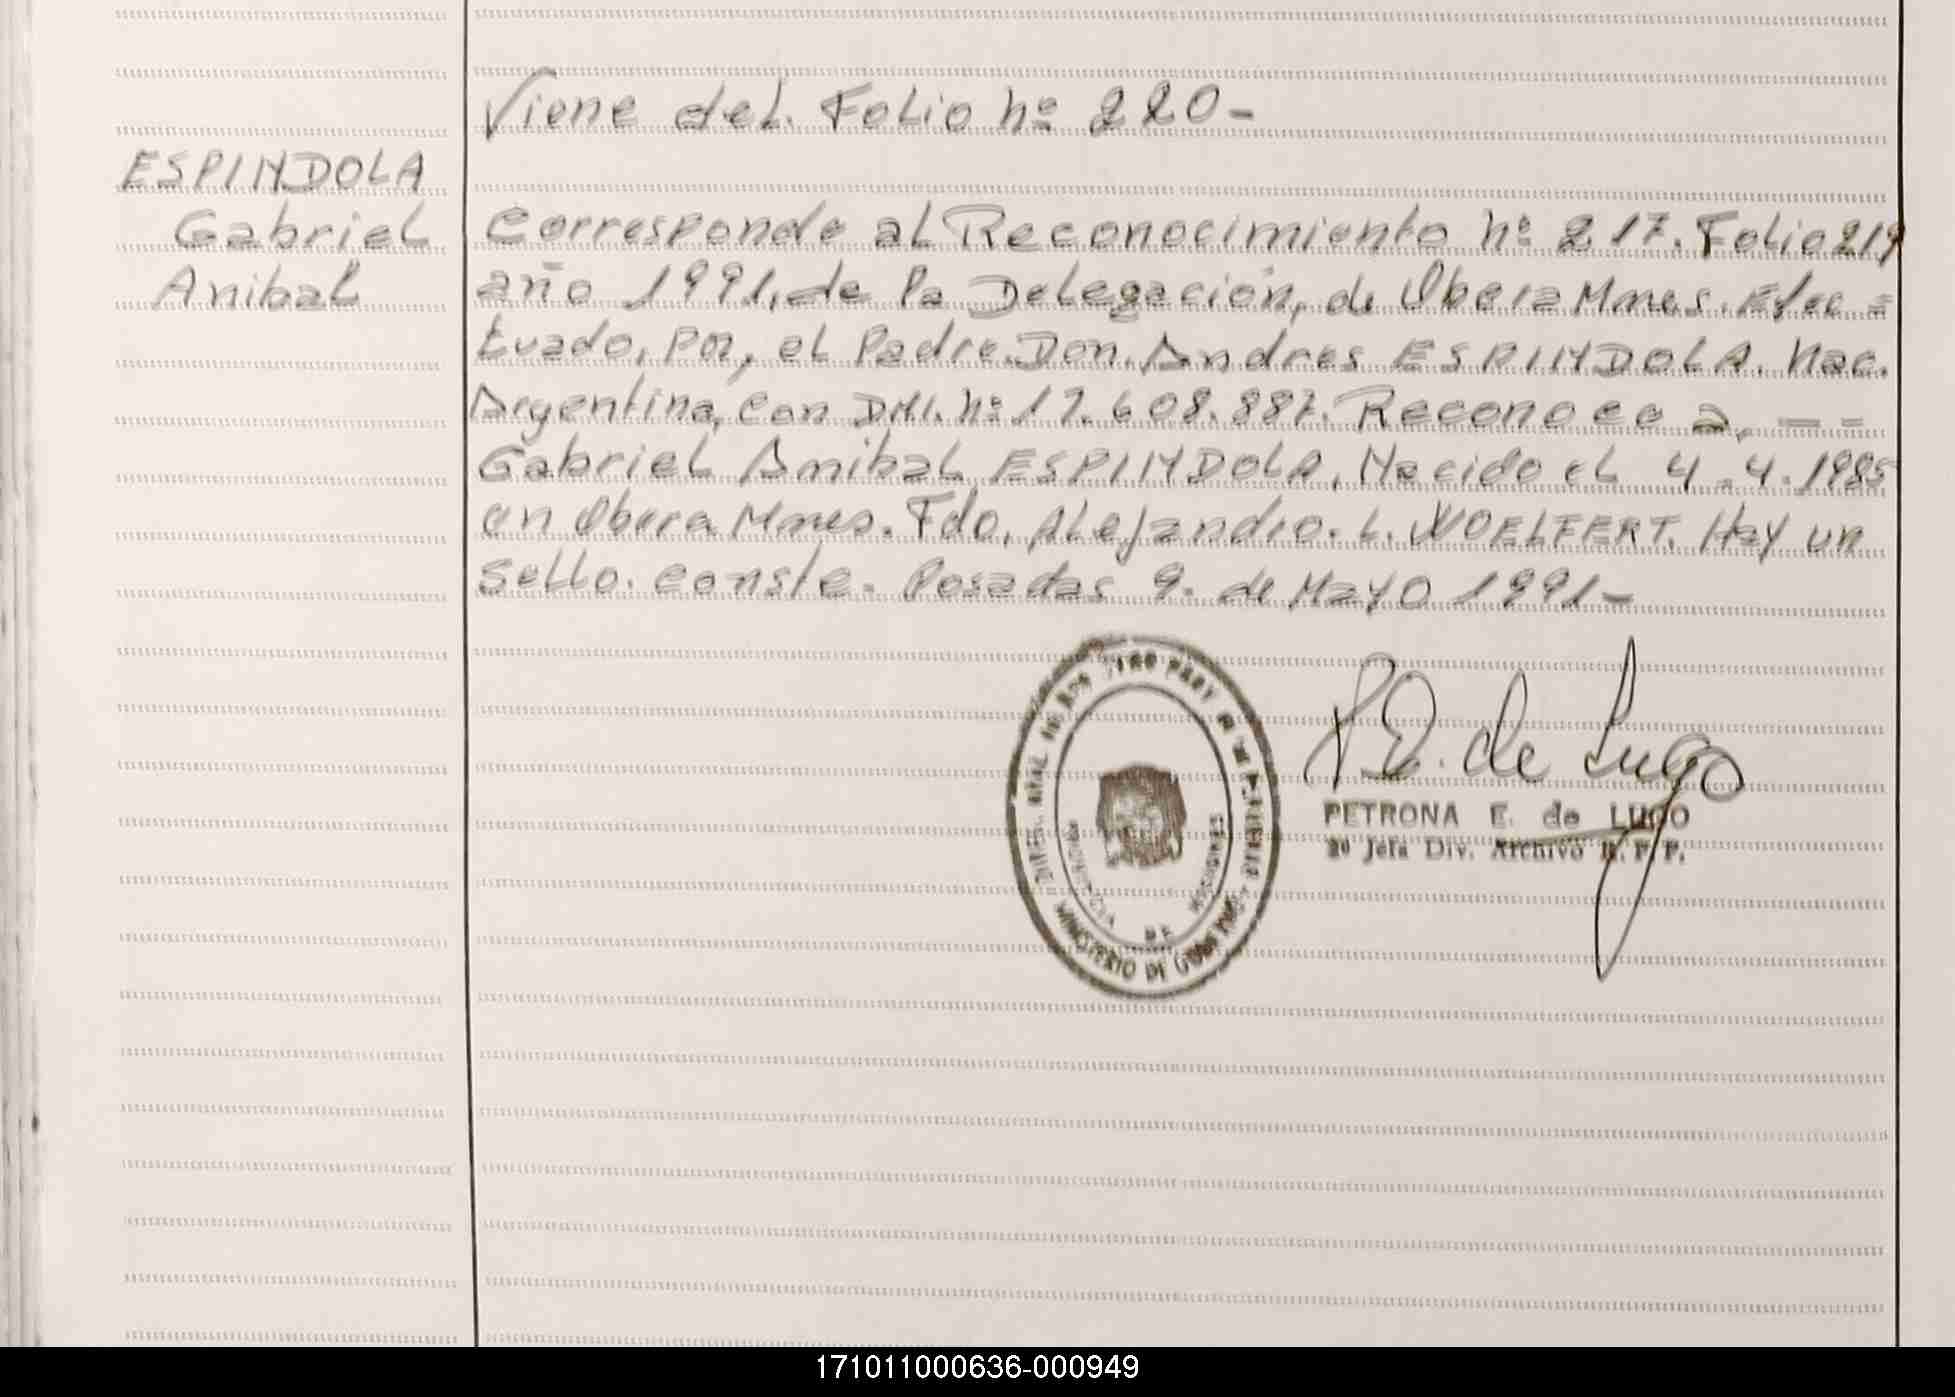 Viene del. Folio nº 220-
ESPINDOLA
Gabriel
Anibal
Corresponde al Reconocimiento nº 217. Folio 219
año 1991, de la Delegación, de Obera Mnes. Efec=
tuado, por, el Padre. Don. Andres ESPINDOLA. Nac.
Argentina, con DNI. nº 17.608.887. Reconoce a, — =
Gabriel Anibal ESPINDOLA. Nacido el 4.4.1985
en Obera Mnes. Fdo, Alejandro. L. WOELFERT. Hay un
Sello. Conste. Posadas 9. de Mayo 1991-
P.E. de Lugo
PETRONA E. de LUGO
2º Jefa Div. Archivo R.P.P.
MINISTERIO DE GOBIERNO
PROVINCIA DE MISIONES
171011000636-000949